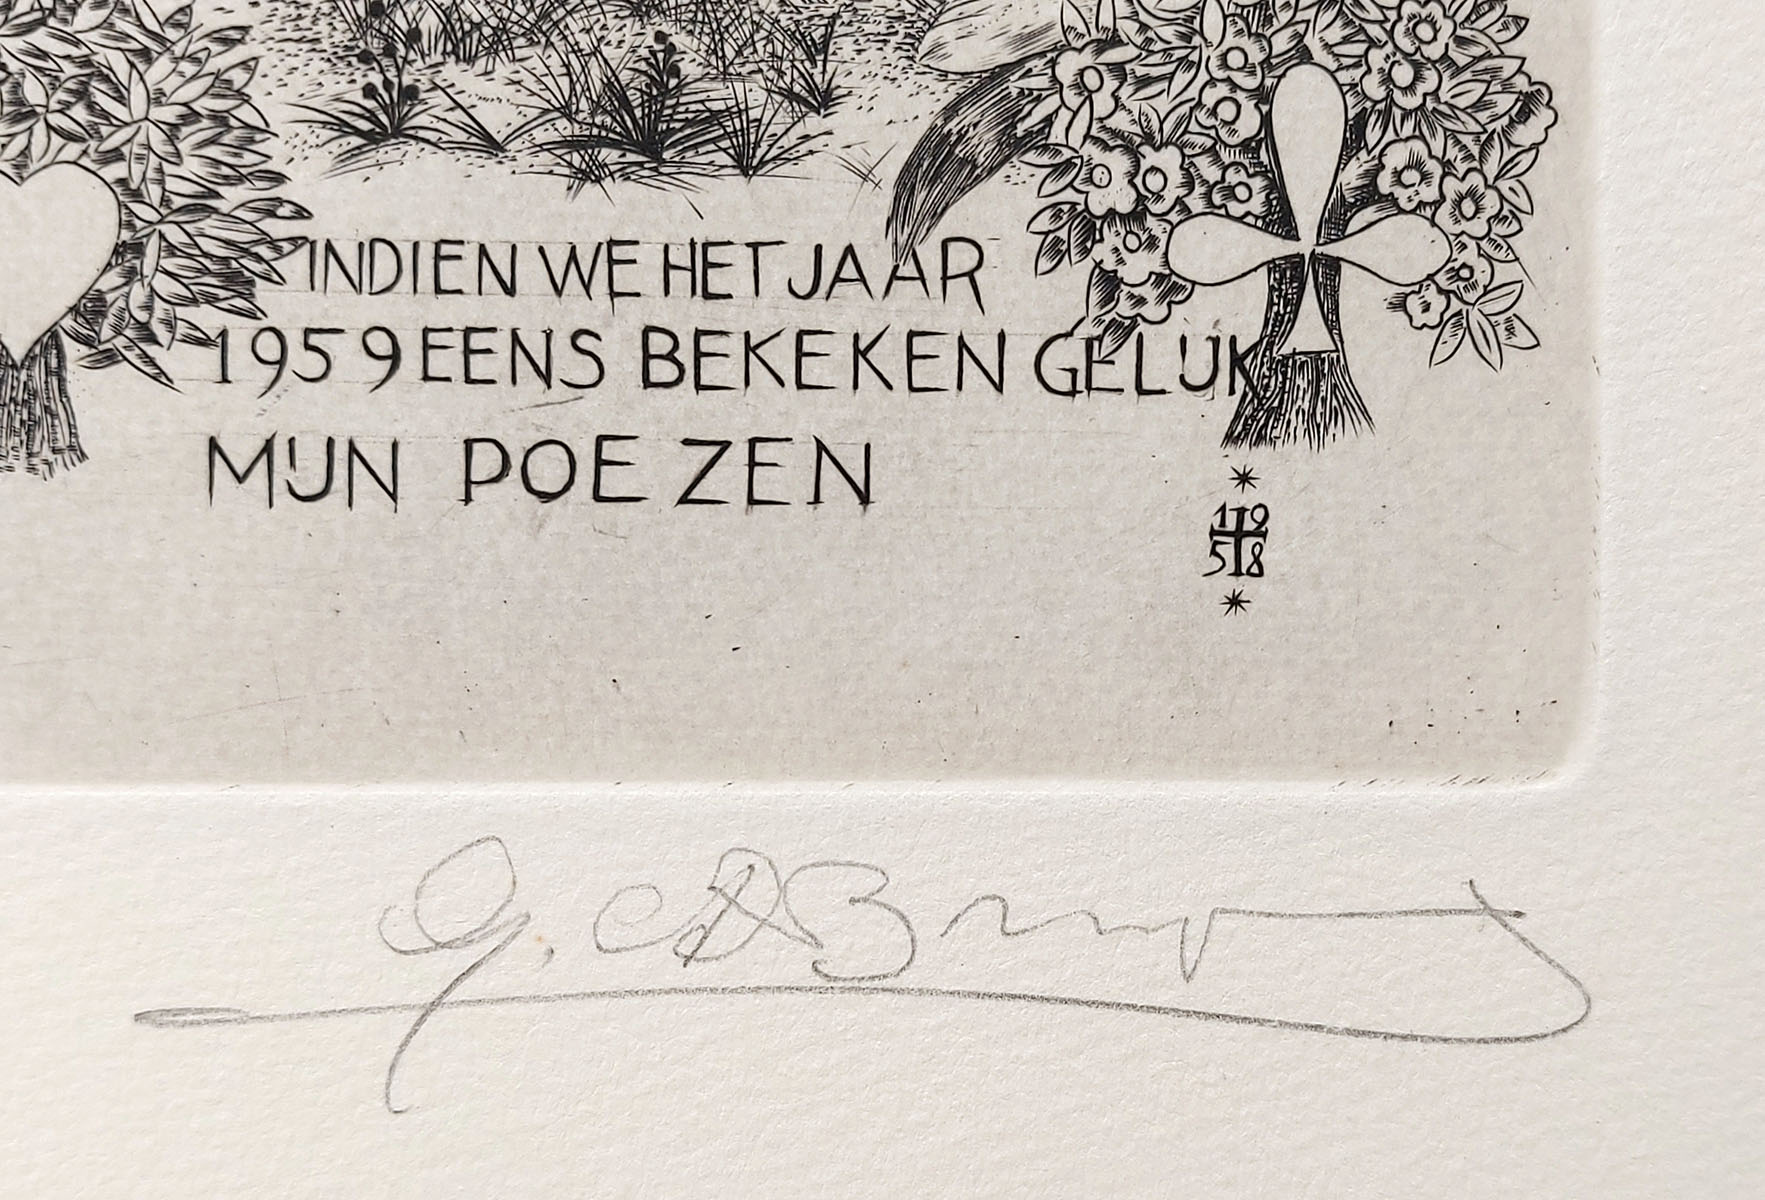 INDIEN WE HET JAAR
1959 EENS BEKEKEN GELIJK
MIJN POEZEN
19
58
G.